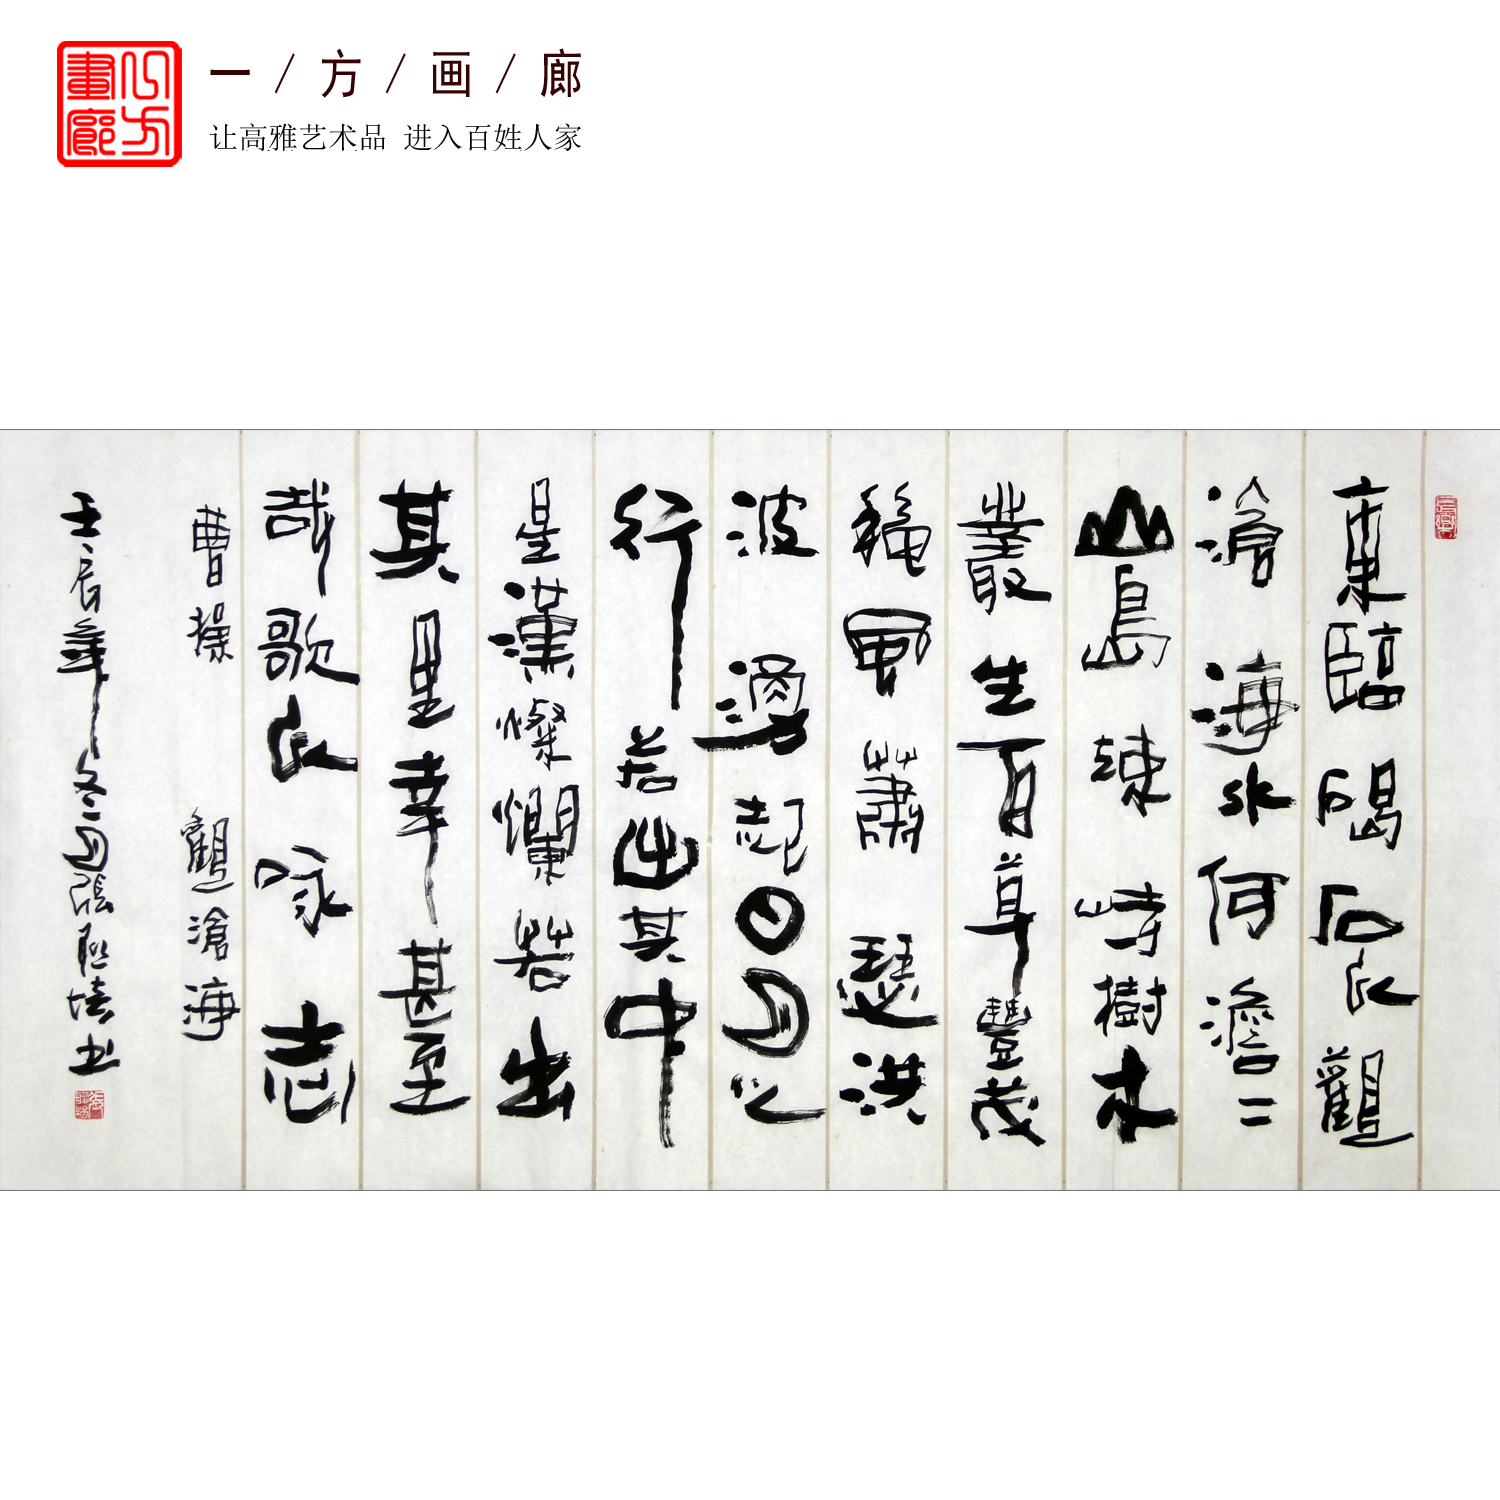 一/方/画/廊
让高雅艺术品 进入百姓人家
東臨碣石以觀
滄海水何澹二
山島竦峙樹木
叢生百草豐茂
穐風蕭瑟洪
波湧起日月之
行若出其中
星漢燦爛若出
其里幸甚至
哉歌以咏志
曹操 觀滄海
壬辰年冬月張聯培书